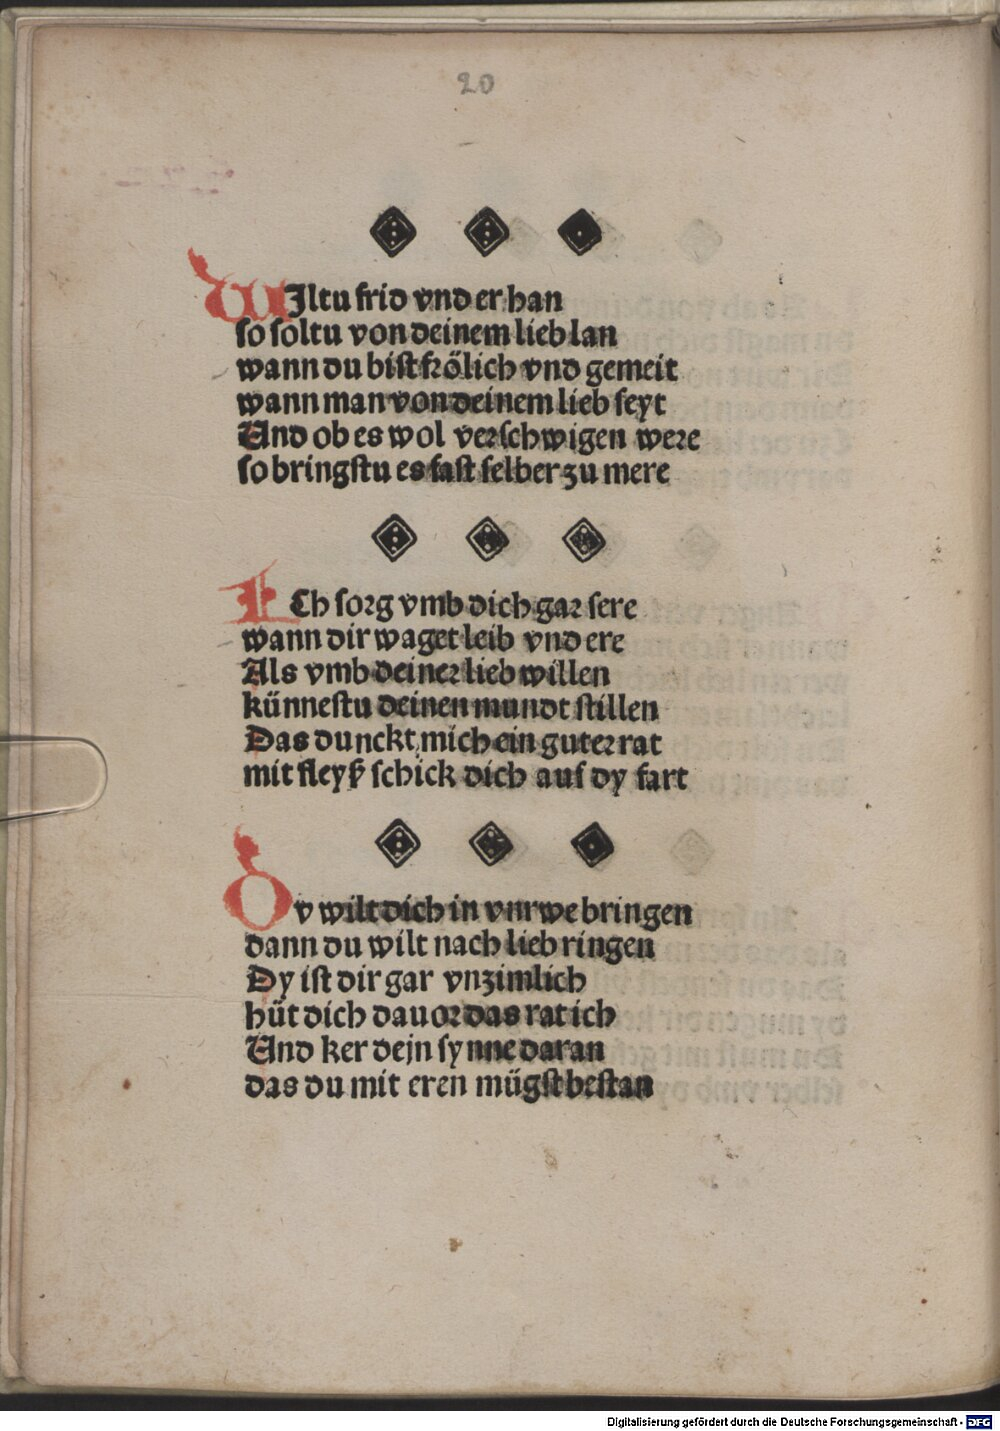 20
WJltu frid vnd er han
so soltu von deinem lieb lan
wann du bist frölich vnd gemeit
wann man von deinem lieb seyt
Vnd ob es wol verschwigen were
so bringstu es fast selber zu mere
ICh sorg vmb dich gar sere
wann dir waget leib vnd ere
Als vmb deiner lieb willen
künnestu deinen mundt stillen
Das dunckt mich ein guter rat
mit fleyß schick dich auf dy fart
Dv wilt dich in vnrwe bringen
dann du wilt nach lieb ringen
Dy ist dir gar vnzimlich
hüt dich dauor das rat ich
Vnd ker dejn synne daran
das du mit eren mügst bestan
Digitalisierung gefördert durch die Deutsche Forschungsgemeinschaft - DFG